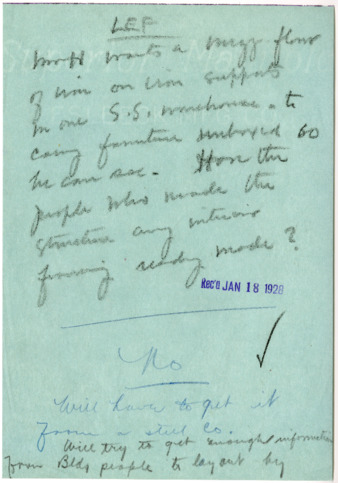 LEF
Mr H wants a mezz floor
of iron on iron supports
in one S.S. warehouse - to
carry furniture unboxed so
he can see. Have the
people who made the
structure any interior
framing ready made?
REC'D JAN 18 1928
No
Will have to get it
from a steel co.
Will try to get enough information
from Bldg people to layout by